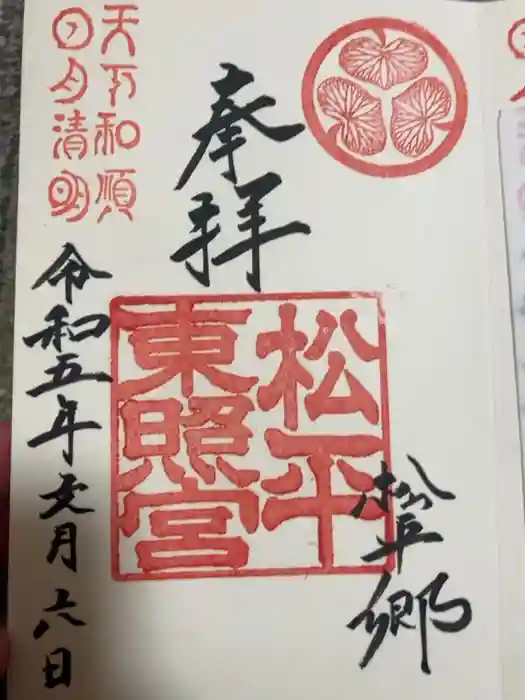 奉拝
松平
東照宮
松平郷
天下和順
日月清明
令和五年文月六日